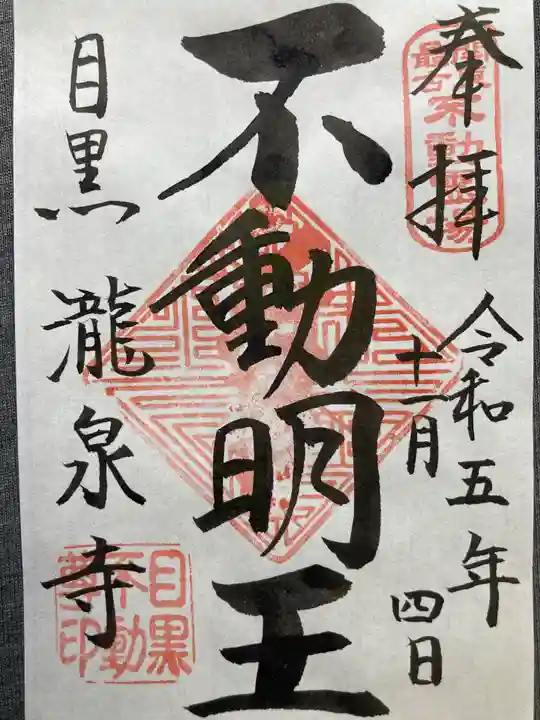 奉拝
関東最古不動霊場
令和五年
十一月
四日
不動明王
目黒 瀧泉寺
目黒不動尊印